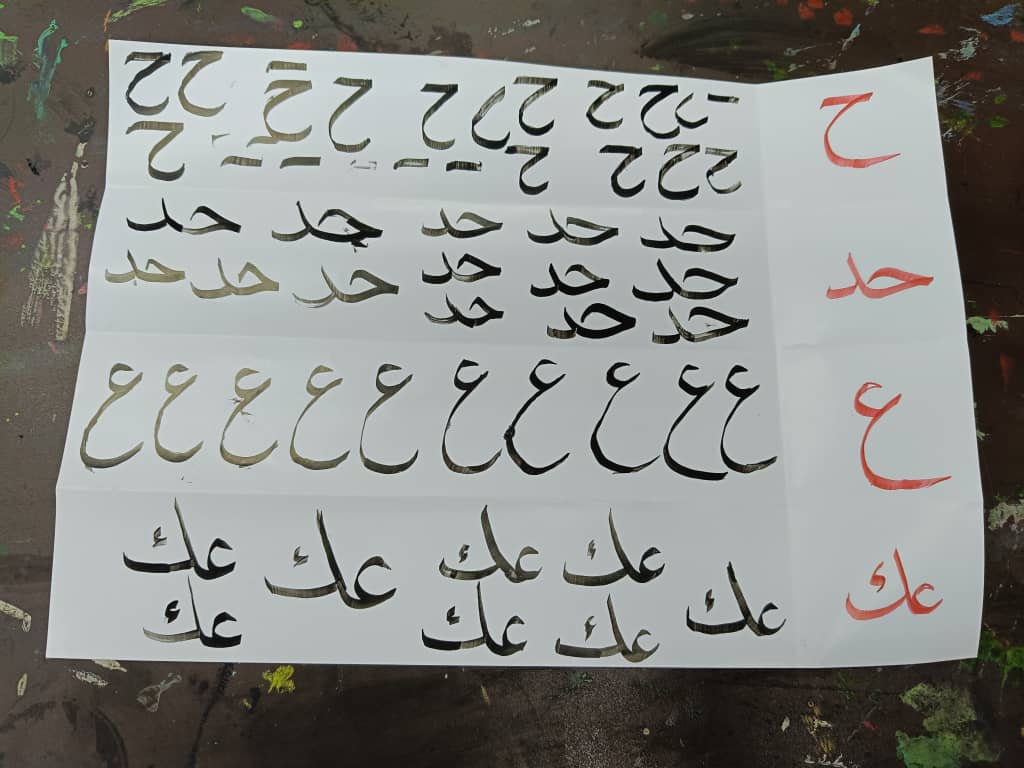 ح ح ح ح ح ح ح ح ح ح
ح ح ح ح ح
حد حد حد حد حد حد
حد حد حد حد حد حد
حد حد حد
ع ع ع ع ع ع ع ع ع ع ع
عك عك عك عك عك عك
عك عك عك